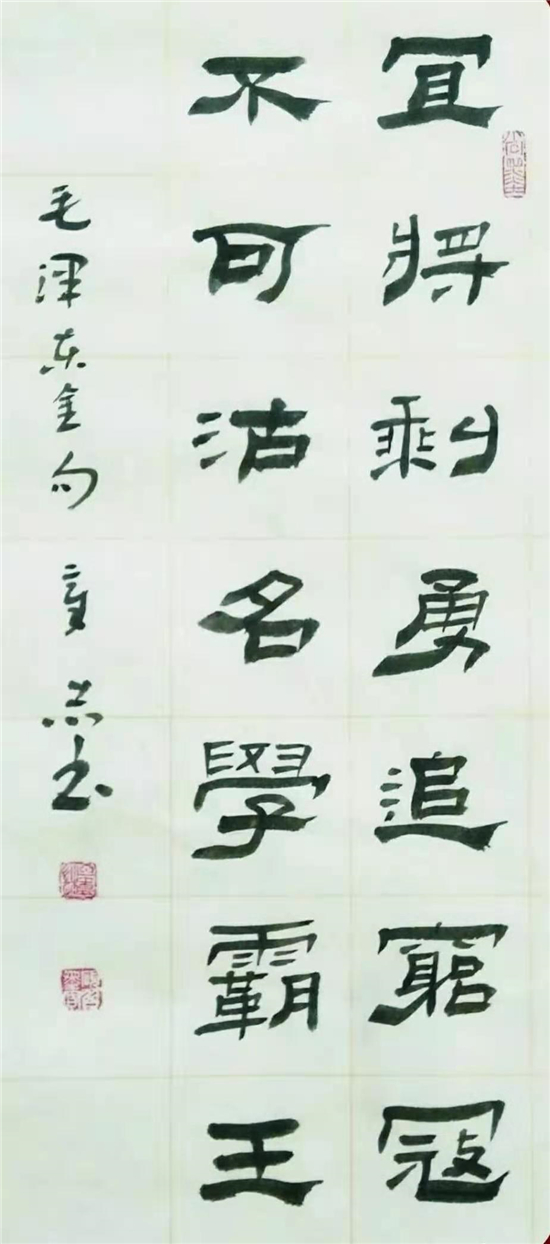 宜將剩勇追窮寇
不可沽名學霸王
毛泽东金句 志书